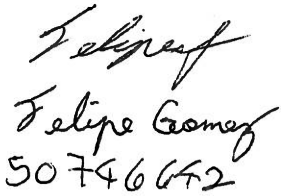 Felipe
Felipe Gomez
50746642